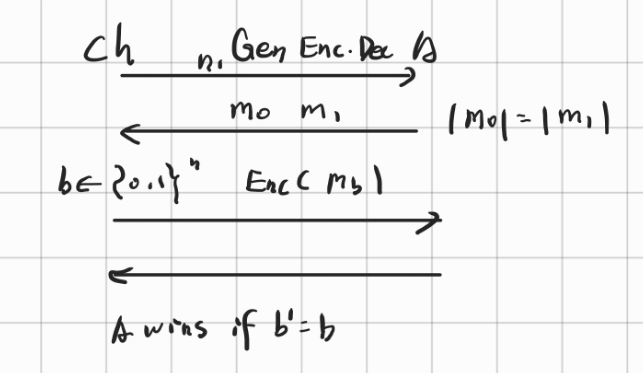 Ch n, Gen Enc. Dec A
m0 m1 |m0| = |m1|
b ← {0.1}^n Enc( mb )
A wins if b' = b